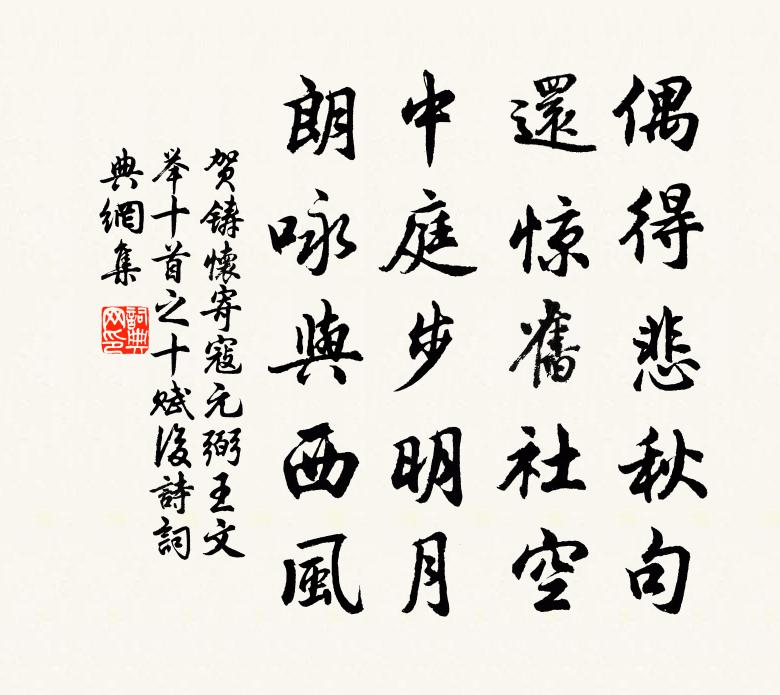 偶得悲秋句
還惊舊社空
中庭步明月
朗咏與西風
贺鑄懷寄寇元弼王文
举十首之十赋後詩詞
典網集
詞典
网印